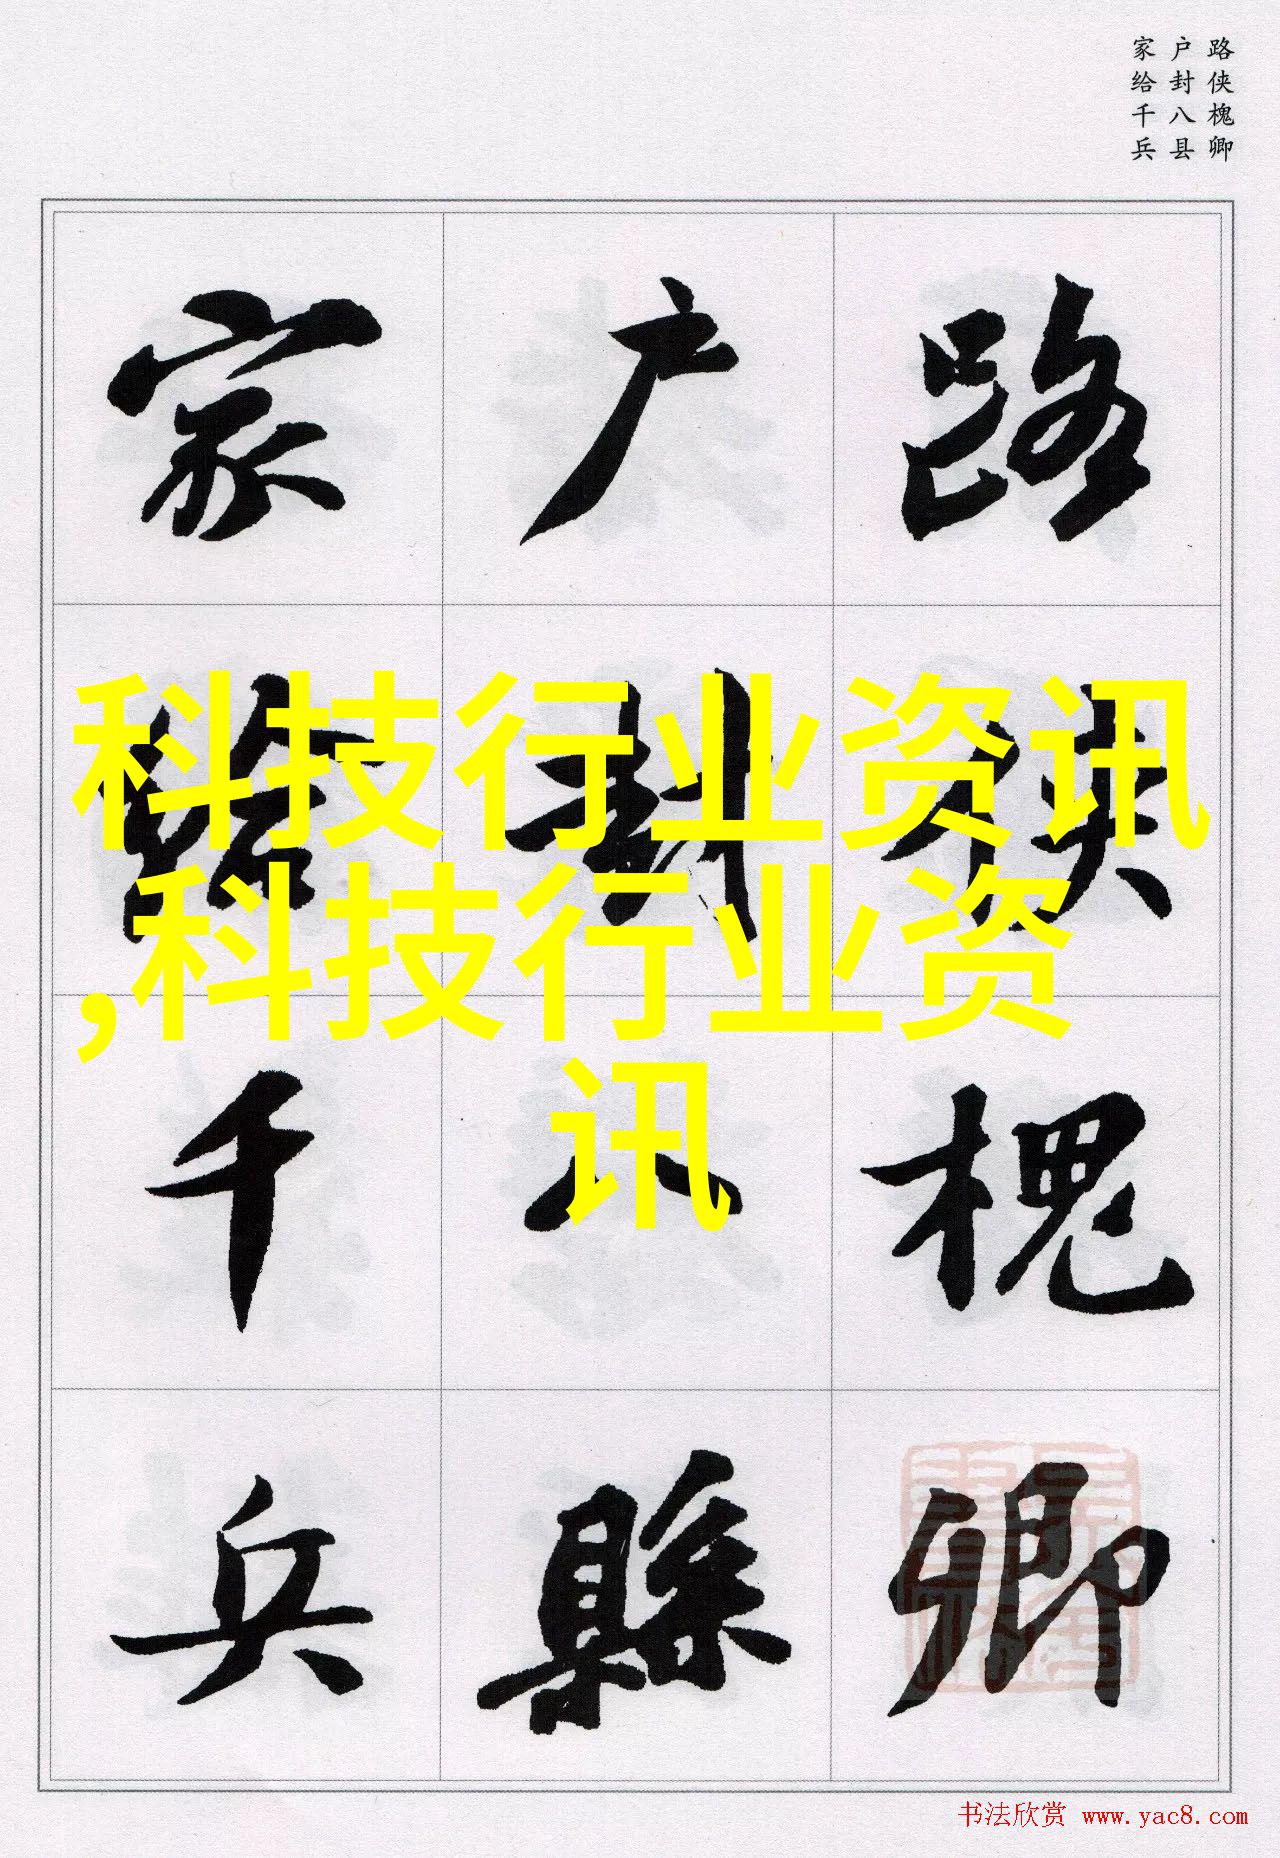 路侠槐卿
户封八县
家给千兵
路侠槐卿
户封八縣
家给千兵
科技行业资讯
,科技行业资
讯
书法欣赏 www.yac8.com